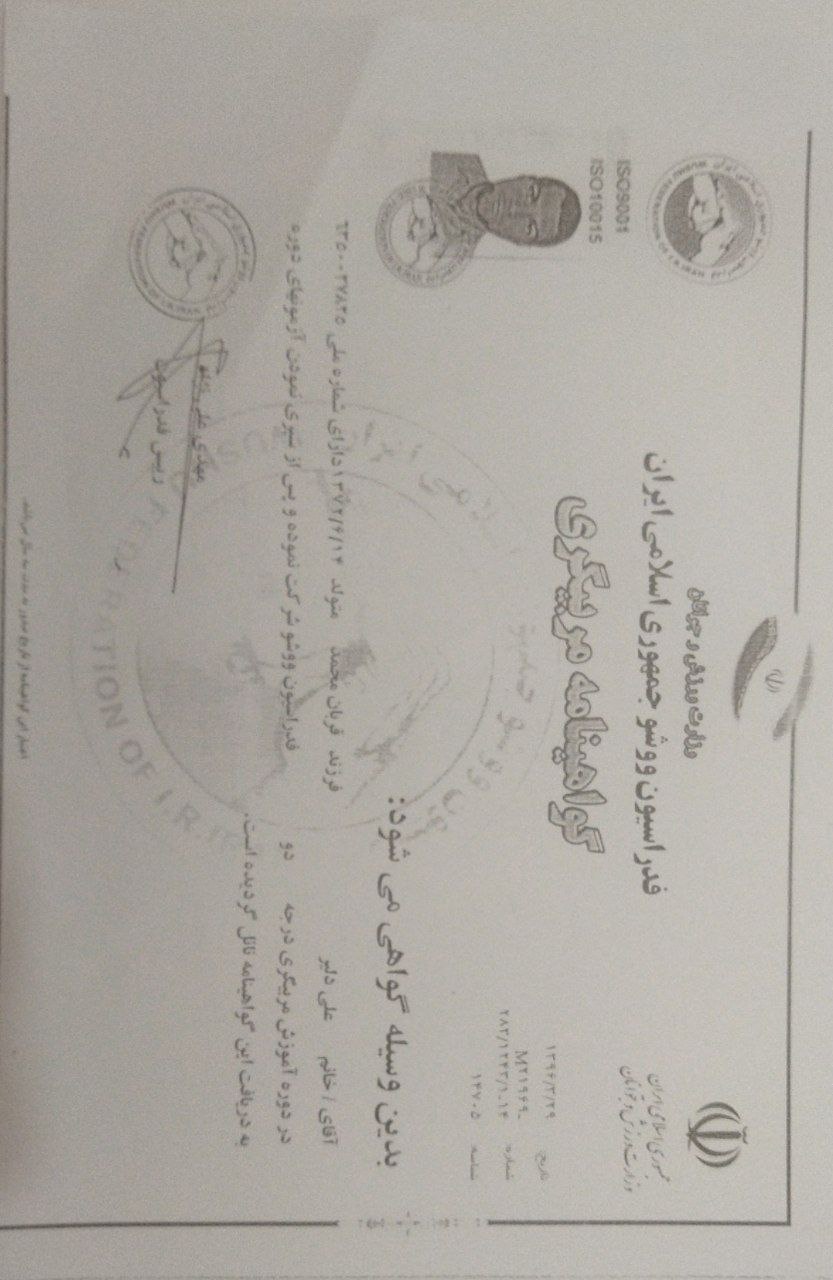 جمهوری اسلامی ایران
وزارت ورزش و جوانان
وزارت ورزش و جوانان
فدراسیون ووشو جمهوری اسلامی ایران
گواهینامه مربیگری
ISO9001
ISO10015
تاریخ: ۱۳۹۶/۳/۲۹
M۲۱۹۶۹-
شماره: ۲۸۳/۱۲۴۳/۱-۱۴
شناسه: ۱۴۷۰۵
بدین وسیله گواهی می شود:
آقای / خانم علی دلیر فرزند قربان محمد متولد ۱۳۷۲/۶/۱۴ دارای شماره ملی
در دوره آموزش مربیگری درجه دو فدراسیون ووشو شرکت نموده و پس از سپری نمودن آزمونهای دوره
به دریافت این گواهینامه نائل گردیده است.
مهدی علی نژاد
رییس فدراسیون
FEDERATION OF I.R.IRAN